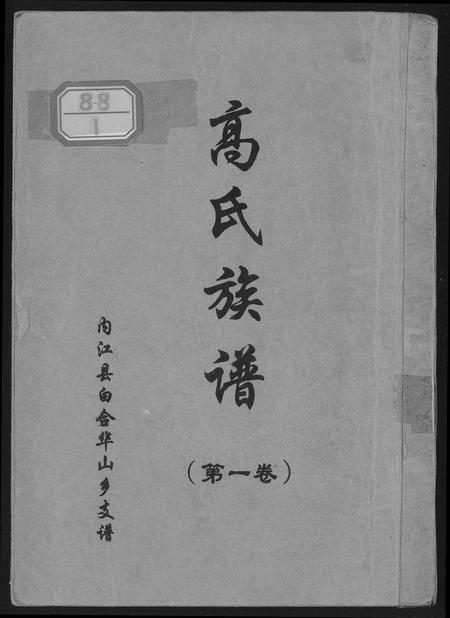 8-8
1
高氏族谱
(第一卷)
内江县白合华山乡支谱